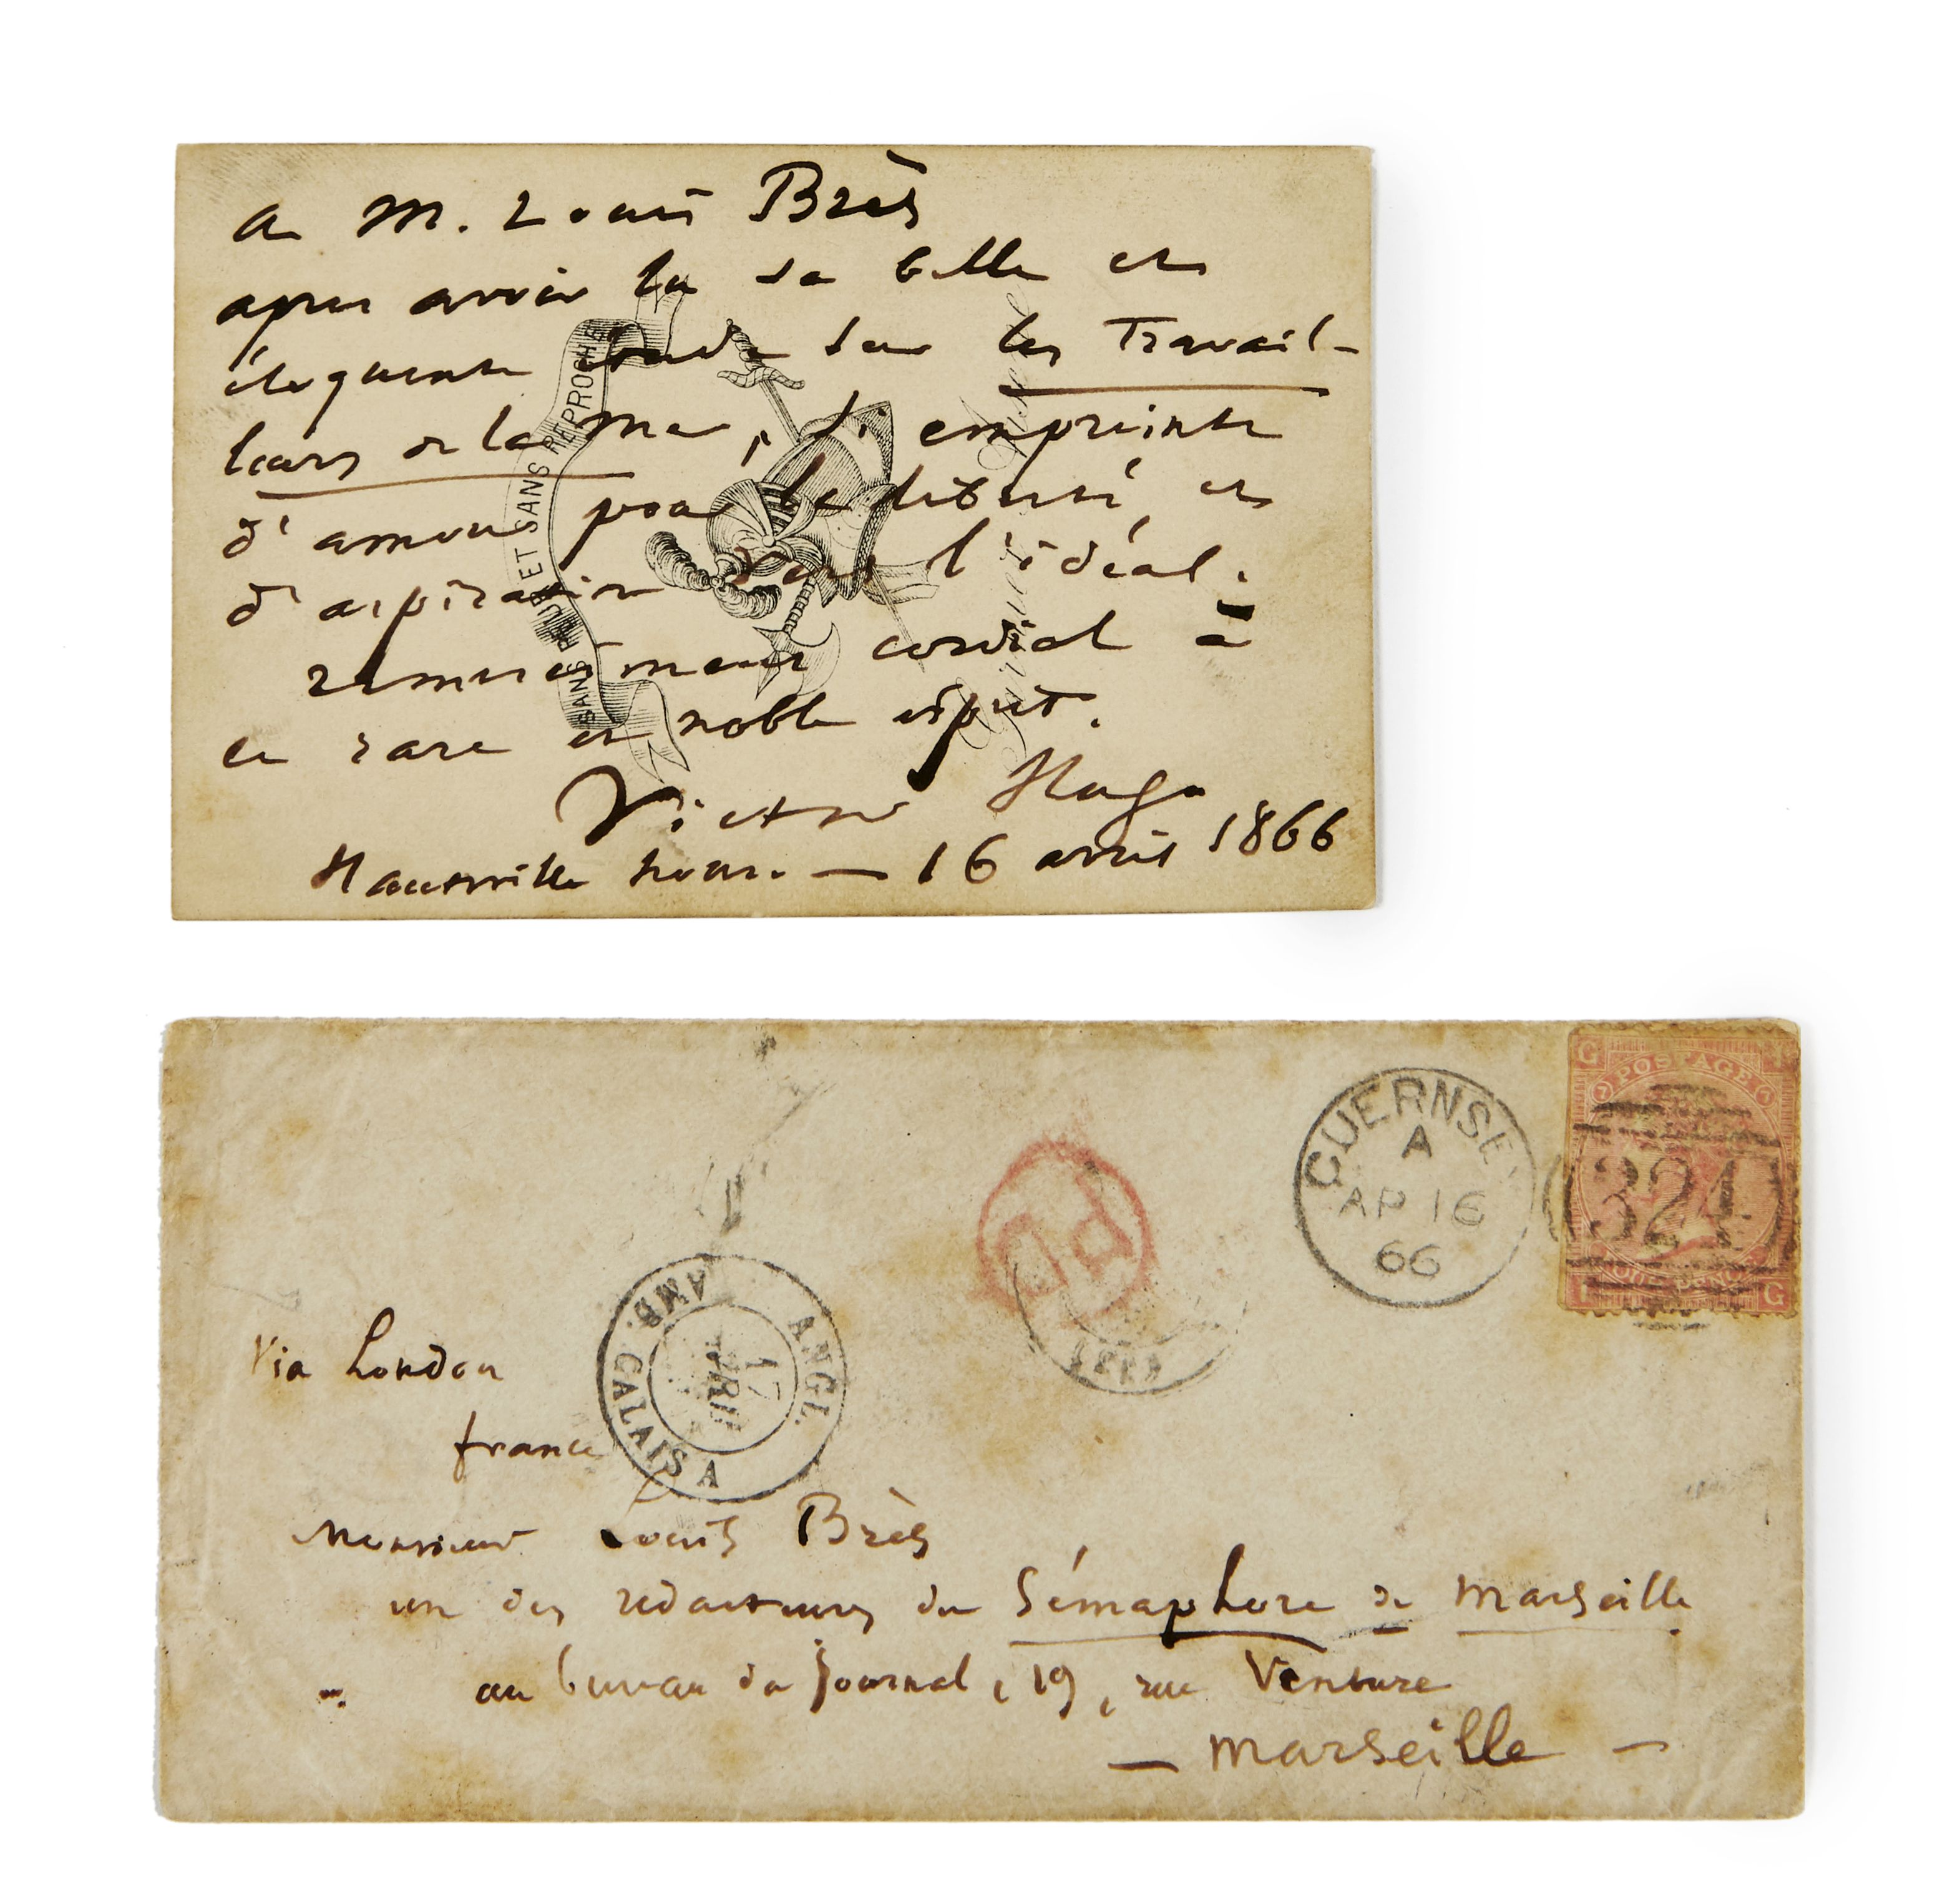 a M. Louis Brès
après avoir lu sa belle et
éloquente étude sur les Travail-
leurs de la mer, si empreinte
d'amour pour la liberté et
d'aspiration vers l'idéal.
remerciement cordial à
ce rare et noble esprit.
Victor Hugo
Hauteville house. — 16 avril 1866
SANS PEUR ET SANS REPROCHE
GUERNSEY
A
AP 16
66
G
POSTAGE
324
G
PD
ANGL. AMB. CALAIS A
17
AVRIL
Via London
france
Monsieur Louis Brès
un des rédacteurs du Sémaphore de Marseille
au bureau du journal, 19, rue Venture
— Marseille —